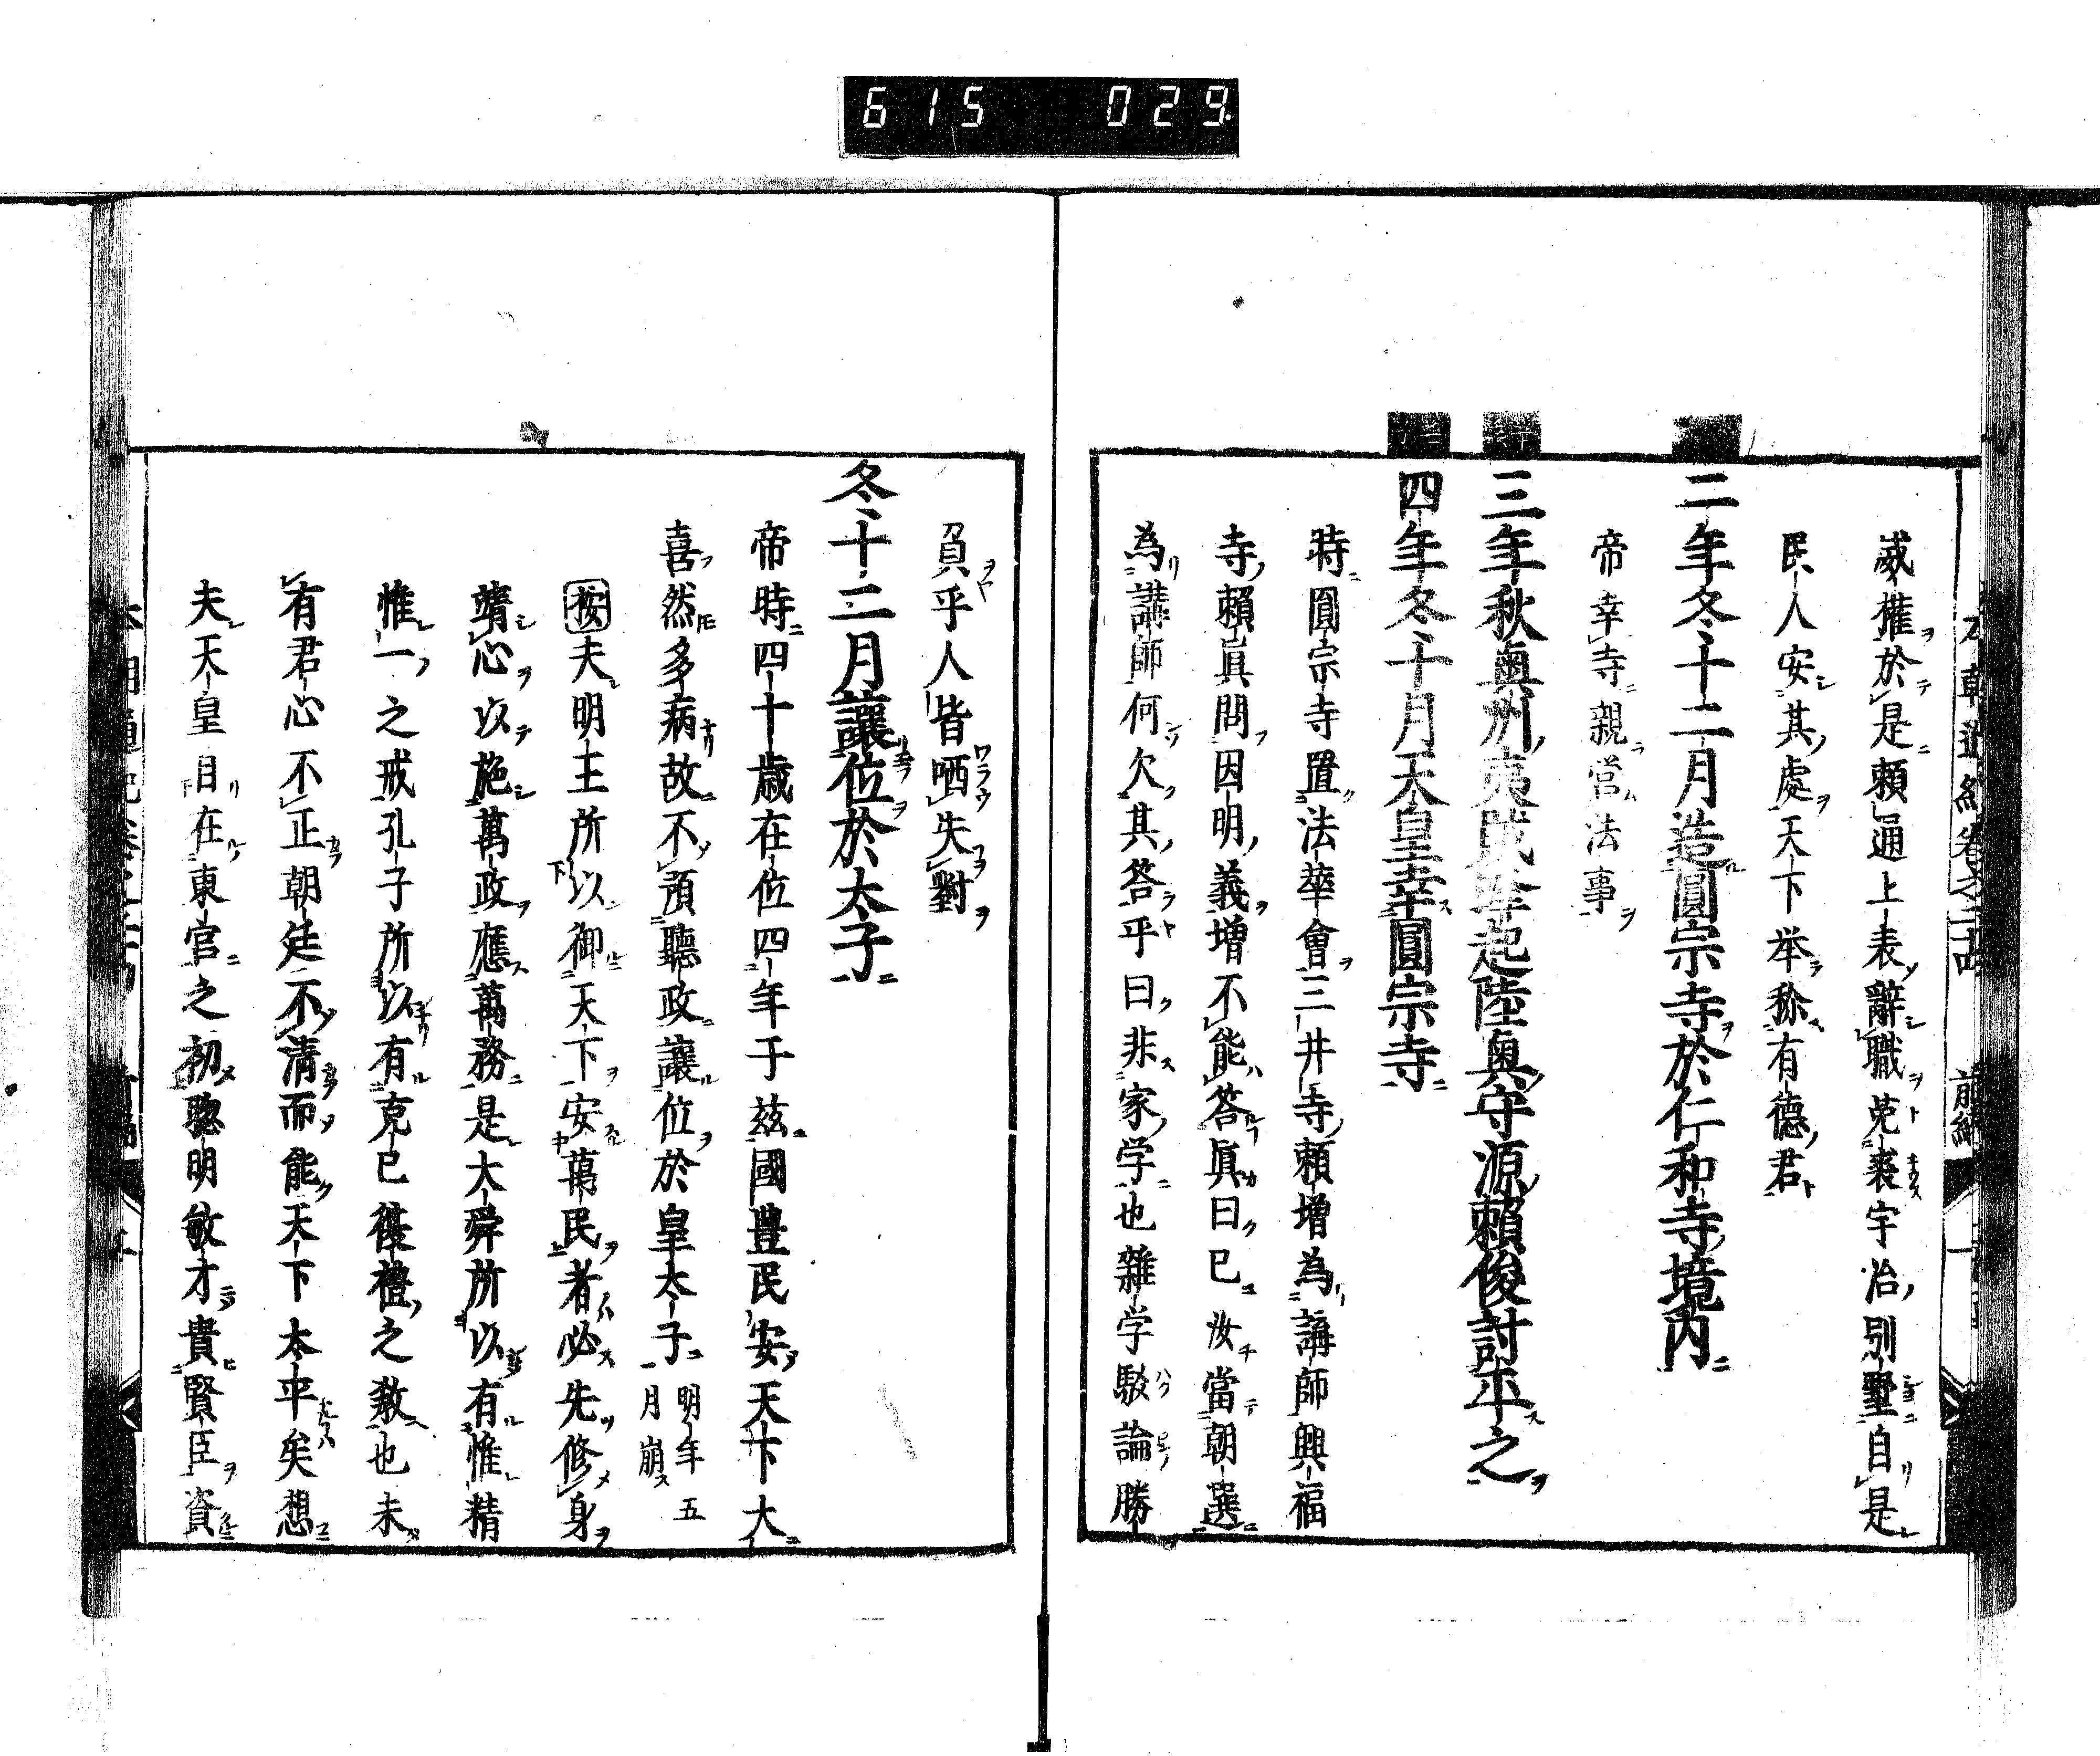 615 029
本朝通紀卷之二十四 前編
威權於是賴通上表辭職莵裘宇治別墅自是
民人安其處天下举称有德君
二年冬十二月造圓宗寺於仁和寺境内
帝幸寺親営法事
三年秋奥州夷賊蜂起陸奥守源賴俊討平之
四年冬十月天皇幸圓宗寺
時圓宗寺置法華會三井寺賴增為講師興福
寺賴眞問因明義增不能答眞曰已汝當朝選
為講師何欠其答乎曰非家学也雜学駁論勝
負乎人皆哂失對
冬十二月讓位於太子
帝時四十歳在位四年于茲國豊民安天下大
喜然多病故不預聽政讓位於皇太子 明年五月崩
按夫明王所以御天下安萬民者必先修身
靖心以施萬政應萬務是大舜所以有惟精
惟一之戒孔子所以有克已復禮之教也未
有君心不正朝廷不清而能天下太平矣想
夫天皇自在東宮之初聰明敏才貴賢臣資